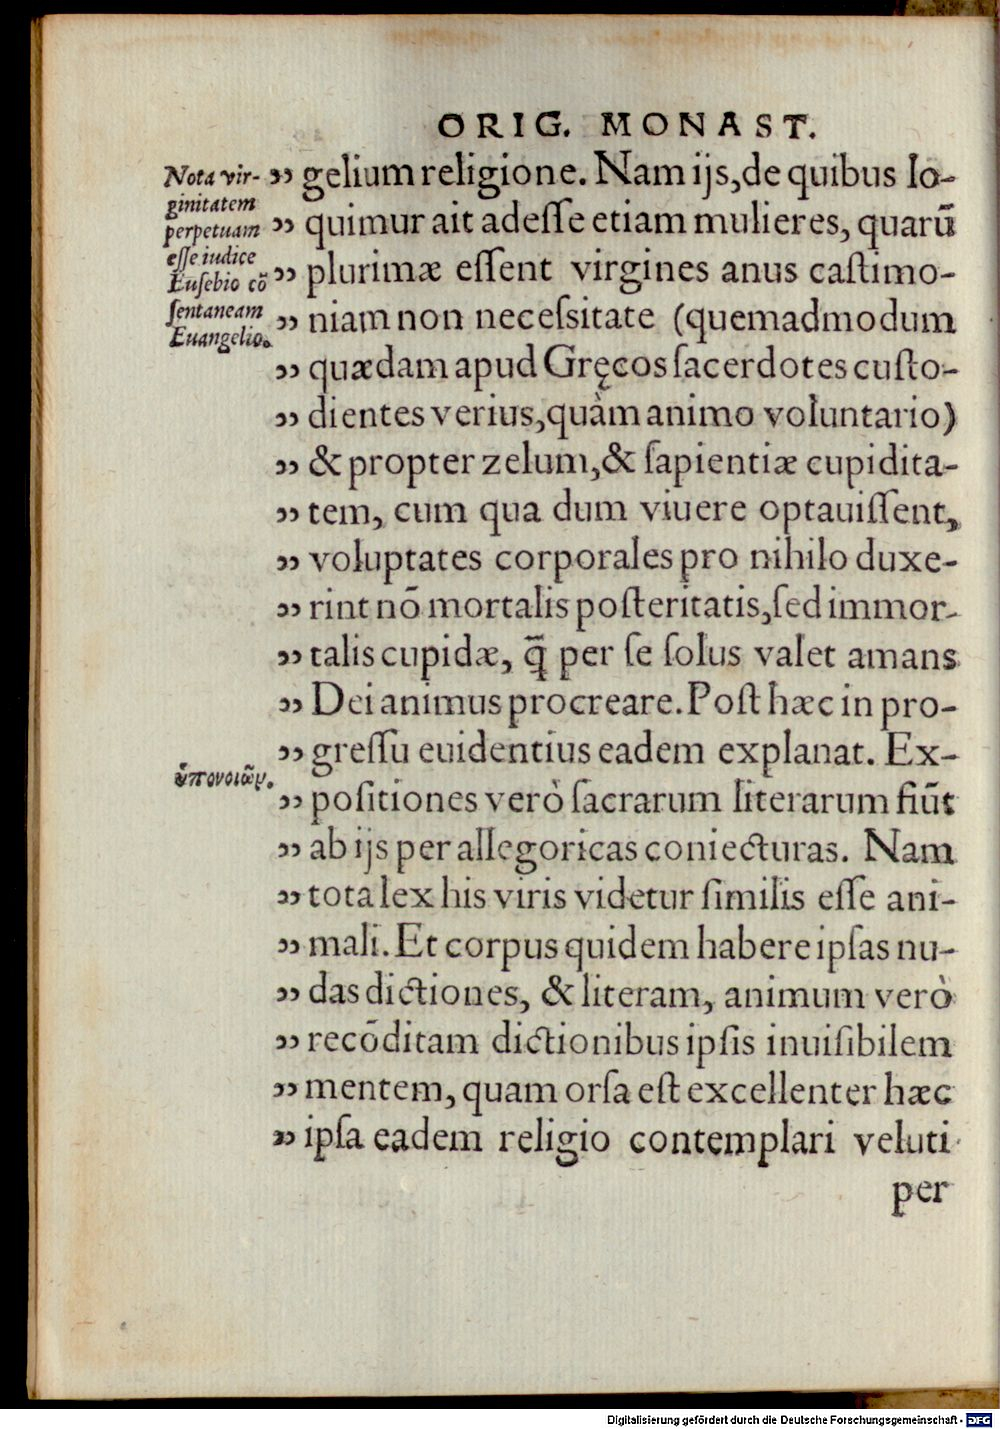 ORIG. MONAST.
Nota vir-
ginitatem
perpetuam
eſſe iudice
Euſebio cō
ſentaneam
Euangelio.
ὑπονοιῶν.
„ gelium religione. Nam ijs, de quibus lo-
„ quimur ait adeſſe etiam mulieres, quarū
„ plurimæ eſſent virgines anus caſtimo-
„ niam non neceſsitate (quemadmodum
„ quædam apud Gręcos ſacerdotes cuſto-
„ dientes verius, quàm animo voluntario)
„ & propter zelum, & ſapientiæ cupidita-
„ tem, cum qua dum viuere optauiſſent,
„ voluptates corporales pro nihilo duxe-
„ rint nō mortalis poſteritatis, ſed immor-
„ talis cupidæ, q̄ per ſe ſolus valet amans
„ Dei animus procreare. Poſt hæc in pro-
„ greſſu euidentius eadem explanat. Ex-
„ poſitiones verò ſacrarum literarum fiūt
„ ab ijs per allegoricas coniecturas. Nam
„ tota lex his viris videtur ſimilis eſſe ani-
„ mali. Et corpus quidem habere ipſas nu-
„ das dictiones, & literam, animum verò
„ recōditam dictionibus ipſis inuiſibilem
„ mentem, quam orſa eſt excellenter hæc
„ ipſa eadem religio contemplari veluti
per
Digitalisierung gefördert durch die Deutsche Forschungsgemeinschaft - DFG